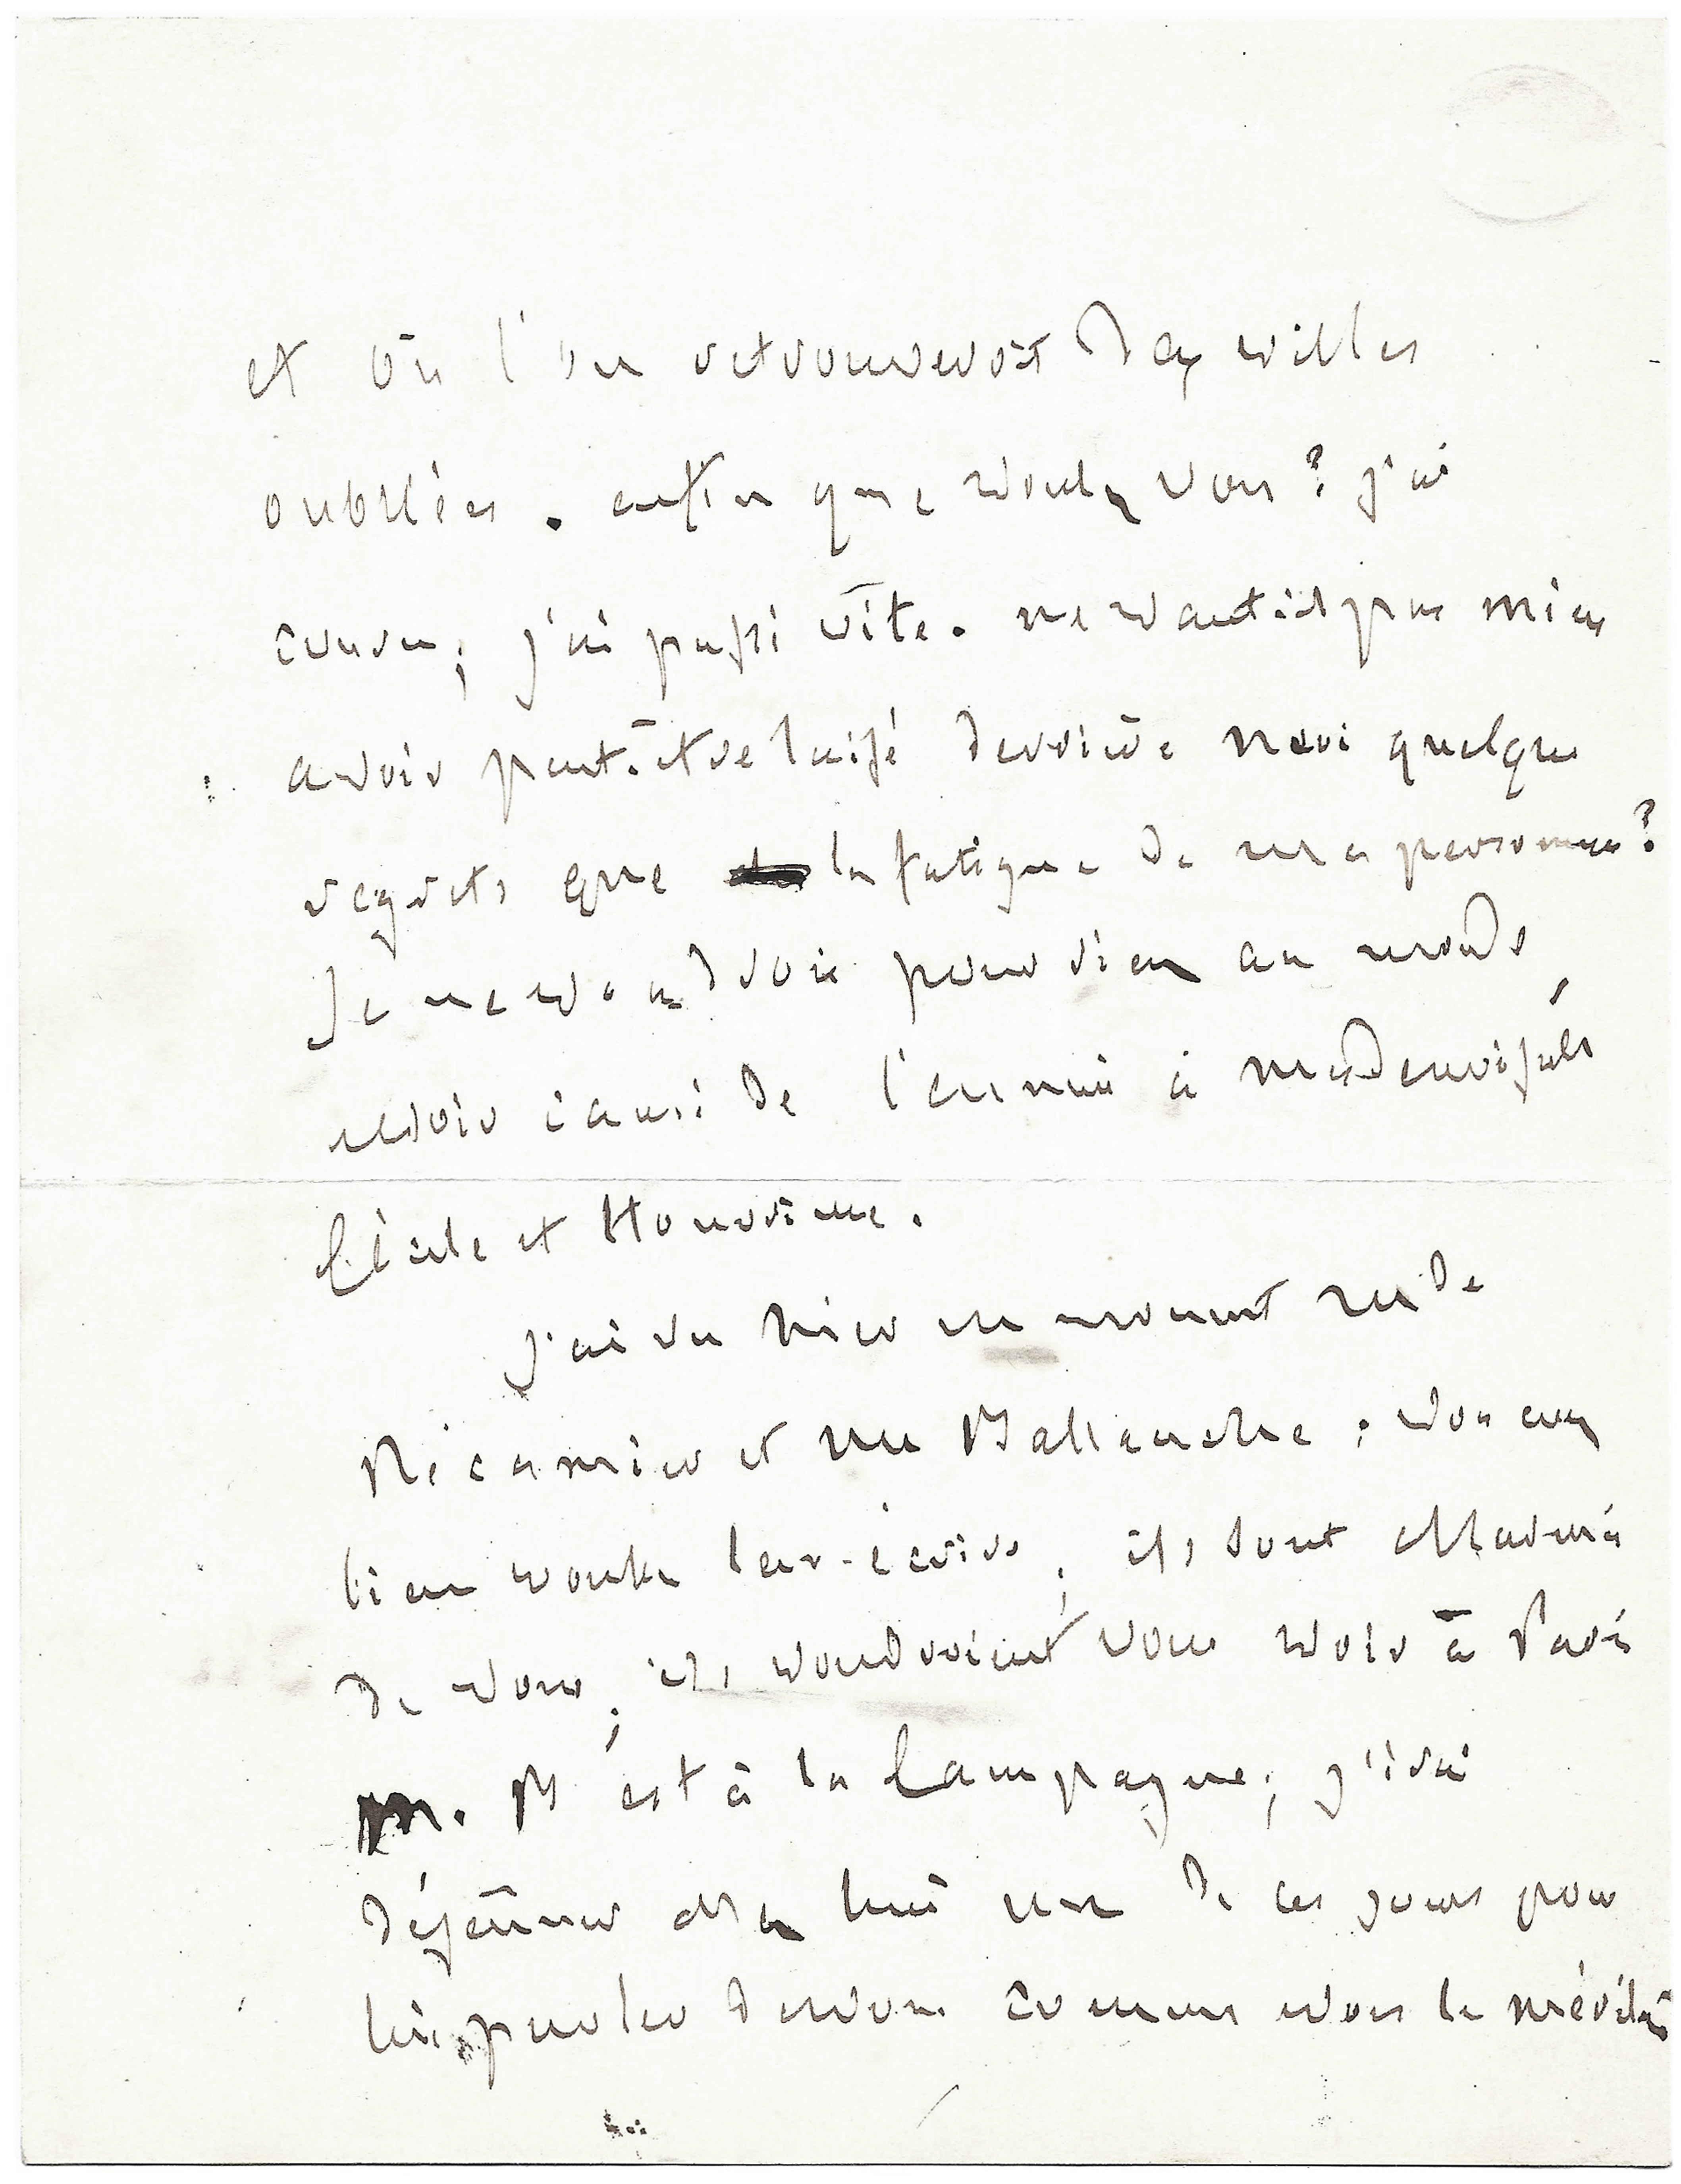 et où l'on retrouveroit des villes
oubliées. enfin que voulez vous? j'ai
couru; j'ai passé vîte. ne vaut-il pas mieux
avoir peut-être laissé derrière moi quelques
regrets que la fatigue de ma personne?
Je ne voudrois pour rien au monde
avoir causé de l'ennui à mesdemoiselles
Cécile et Honorine.
J'ai vu hier un moment mde
Récamier et Mr Ballanche; vous avez
bien voulu leur écrire; ils sont charmés
de vous; ils voudroient vous voir à Paris
M. B est à la Campagne; j'irai
déjeûner chez lui un de ces jours pour
lui parler de vous comme vous le méritez